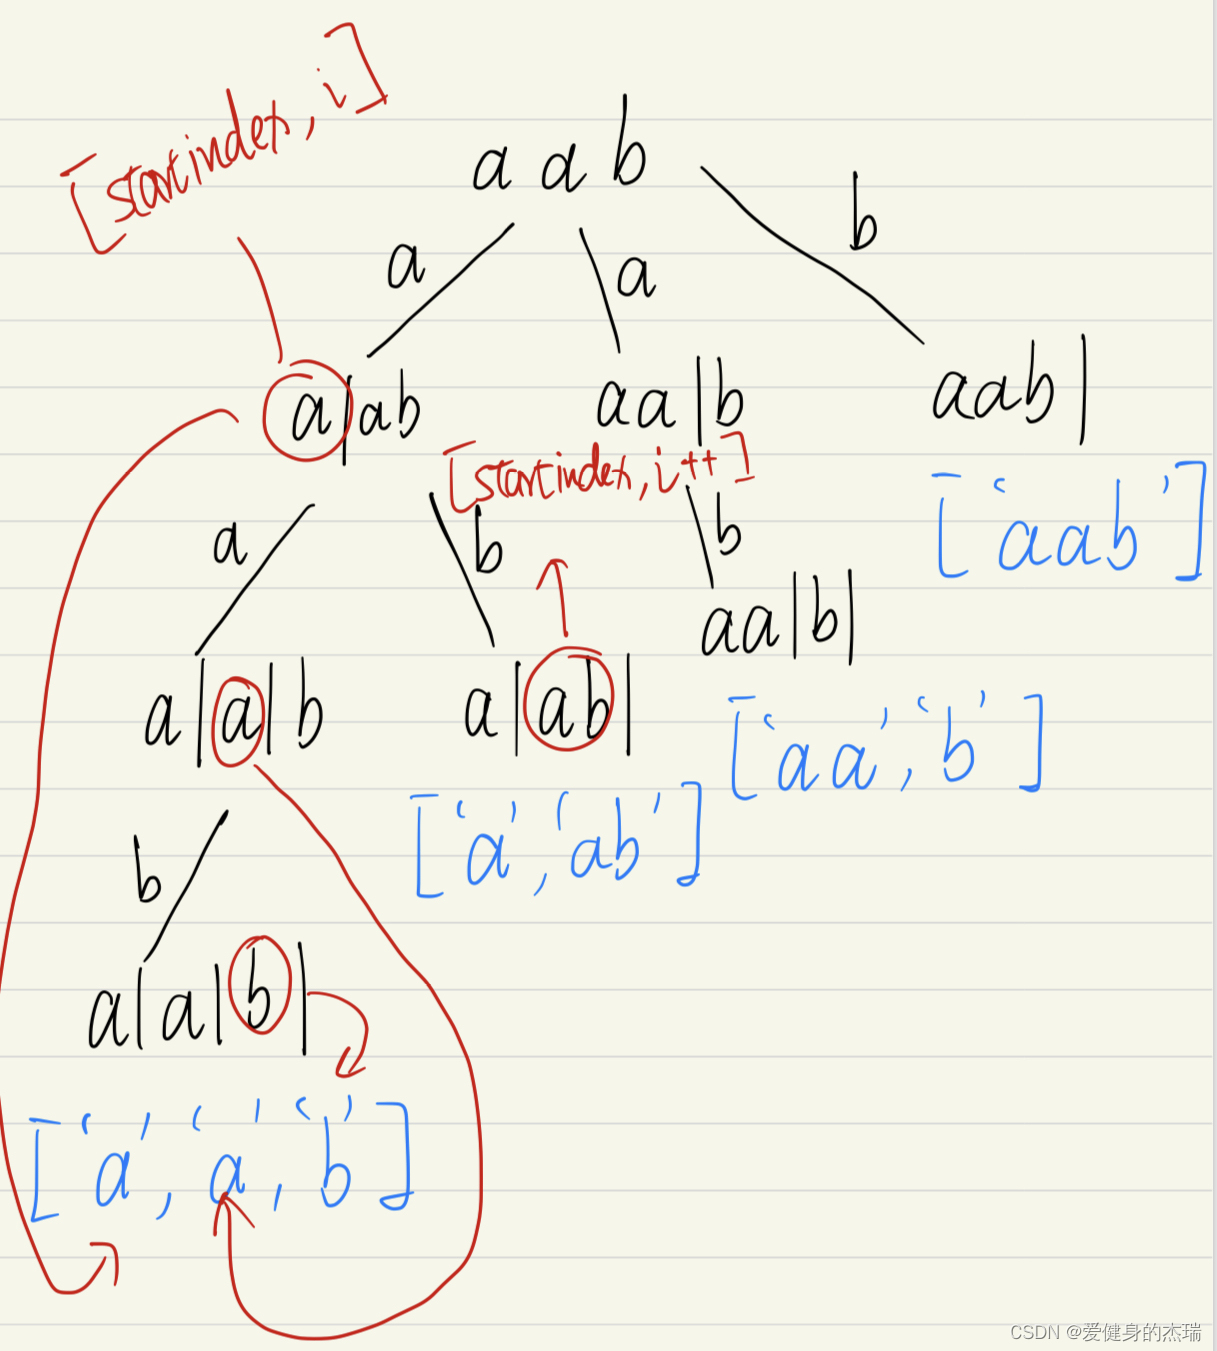 [startindex, i]
a a b
a a b
a|ab aa|b aab|
[startindex, i++]
['aab']
a b b
aa|b|
a|a|b a|ab|
['aa','b']
['a','ab']
b
a|a|b|
['a','a','b']
CSDN @爱健身的杰瑞